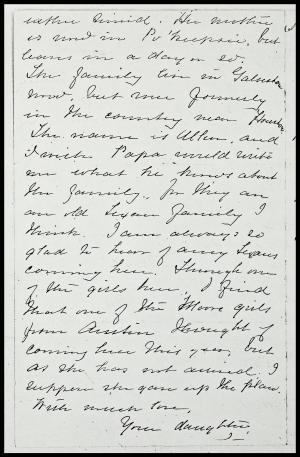 rather timid. Her mother
is now in Po'keepsie, but
leaves in a day or so.
The family live in Galveston
now, but were formerly
in the country near Houston.
The name is Allen, and
I wish Papa would write
me what he knows about
the family, for they are
an old Texan family I
think. I am always so
glad to hear of any Texans
coming here. Through one
of the girls here, I find
that one of the Moore girls
from Austin thought of
coming here this year, but
as she has not arrived I
suppose she gave up the plan.
With much love,
Your daughter,